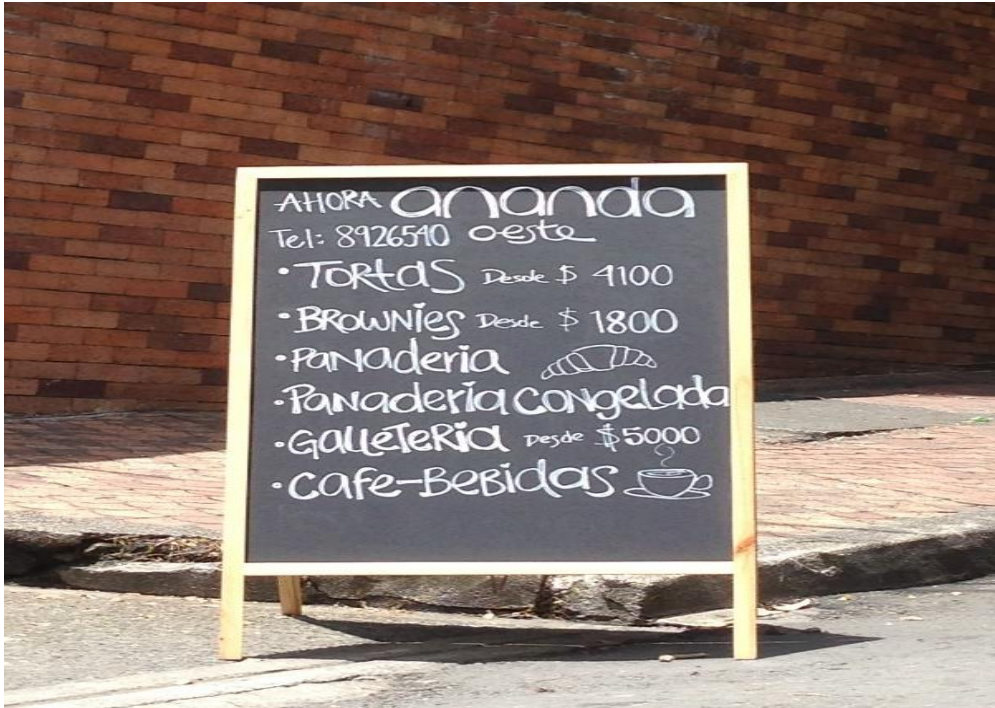 AHORA ananda
Tel: 8926540 oeste
• TORtaS Desde $ 4100
• BROWNieS Desde $ 1800
• PaNaderia
• PaNaderia CoNgeLada
• GaLLeTeRia Desde $5000
• Cafe-BeBidas